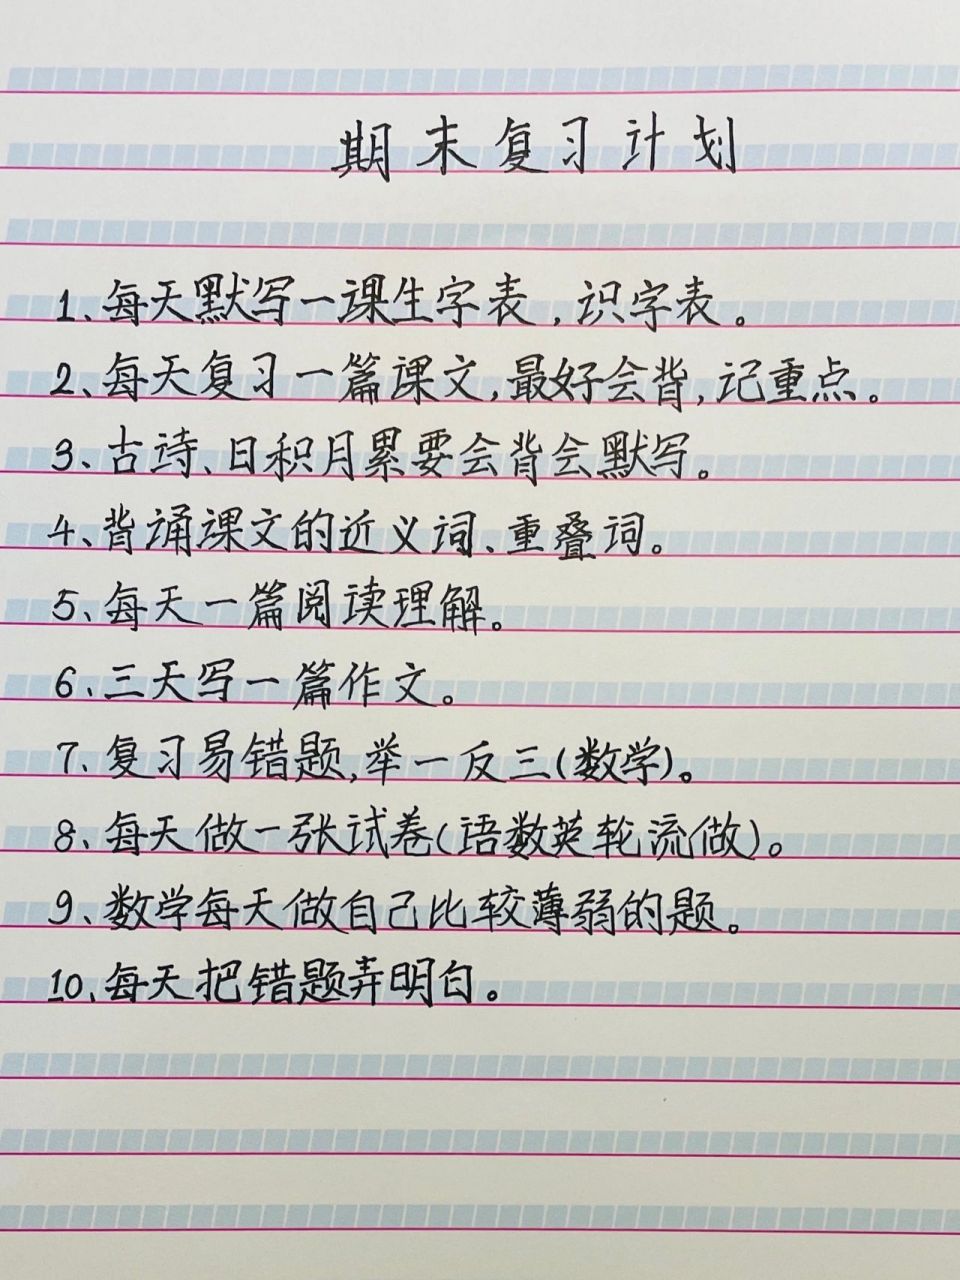 期末复习计划
1、每天默写一课生字表,识字表。
2、每天复习一篇课文,最好会背,记重点。
3、古诗、日积月累要会背会默写。
4、背诵课文的近义词、重叠词。
5、每天一篇阅读理解。
6、三天写一篇作文。
7、复习易错题,举一反三(数学)。
8、每天做一张试卷(语数英轮流做)。
9、数学每天做自己比较薄弱的题。
10、每天把错题弄明白。